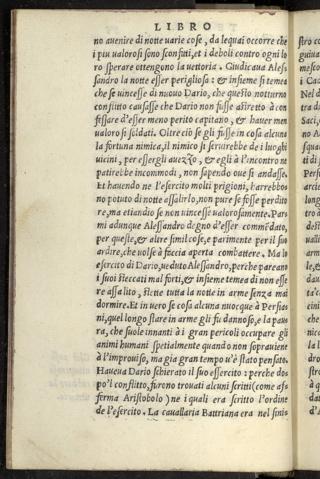 LIBRO
no auenire di notte uarie cose, da lequai occorre che
i piu ualorosi sono sconfitti, et i deboli contro ogni lo
ro sperare ottengono la uettoria. Giudicaua Ales-
sandro la notte esser perigliosa: & insieme si temea
che se uincesse di nuouo Dario, che questo notturno
conflitto causasse che Dario non fusse astretto à con
fessare d'esser meno perito capitano, & hauer men
ualorosi soldati. Oltre ciò se gli fusse in cosa alcuna
la fortuna nimica, il nimico si seruirebbe de i luoghi
uicini, per essergli auezzo, & egli à l'incontro ne
patirebbe incommodi, non sapendo oue si andasse.
Et hauendo ne l'esercito molti prigioni, harrebbos
no potuto di notte assalirlo, non pure se fosse perdito
re, ma etiandio se non uincesse ualorosamente. Par
mi adunque Alessandro degno d'esser commēdato,
per queste, & altre simil cose, e parimente per il suo
ardire, che uolse à faccia aperta combattere. Ma lo
esercito di Dario, ueduto Alessandro, perche pareano
i suoi steccati mal forti, & insieme temea di non esse
re assalito, stette tutta la notte in arme senza mai
dormire. Et in uero se cosa alcuna nuocque à Persia
ni, quel longo stare in arme gli fu dannoso, e la pau
ra, che suole innanti à i gran pericoli occupare gli
animi humani spetialmente quando non soprauiene
à l'improuiso, ma gia gran tempo u'è stato pensato.
Haueua Dario schierato il suo essercito: perche do
po'l conflitto, furono trouati alcuni scritti (come af
ferma Aristobolo) ne i quali era scritto l'ordine
de l'esercito. La cauallaria Battriana era nel sinis